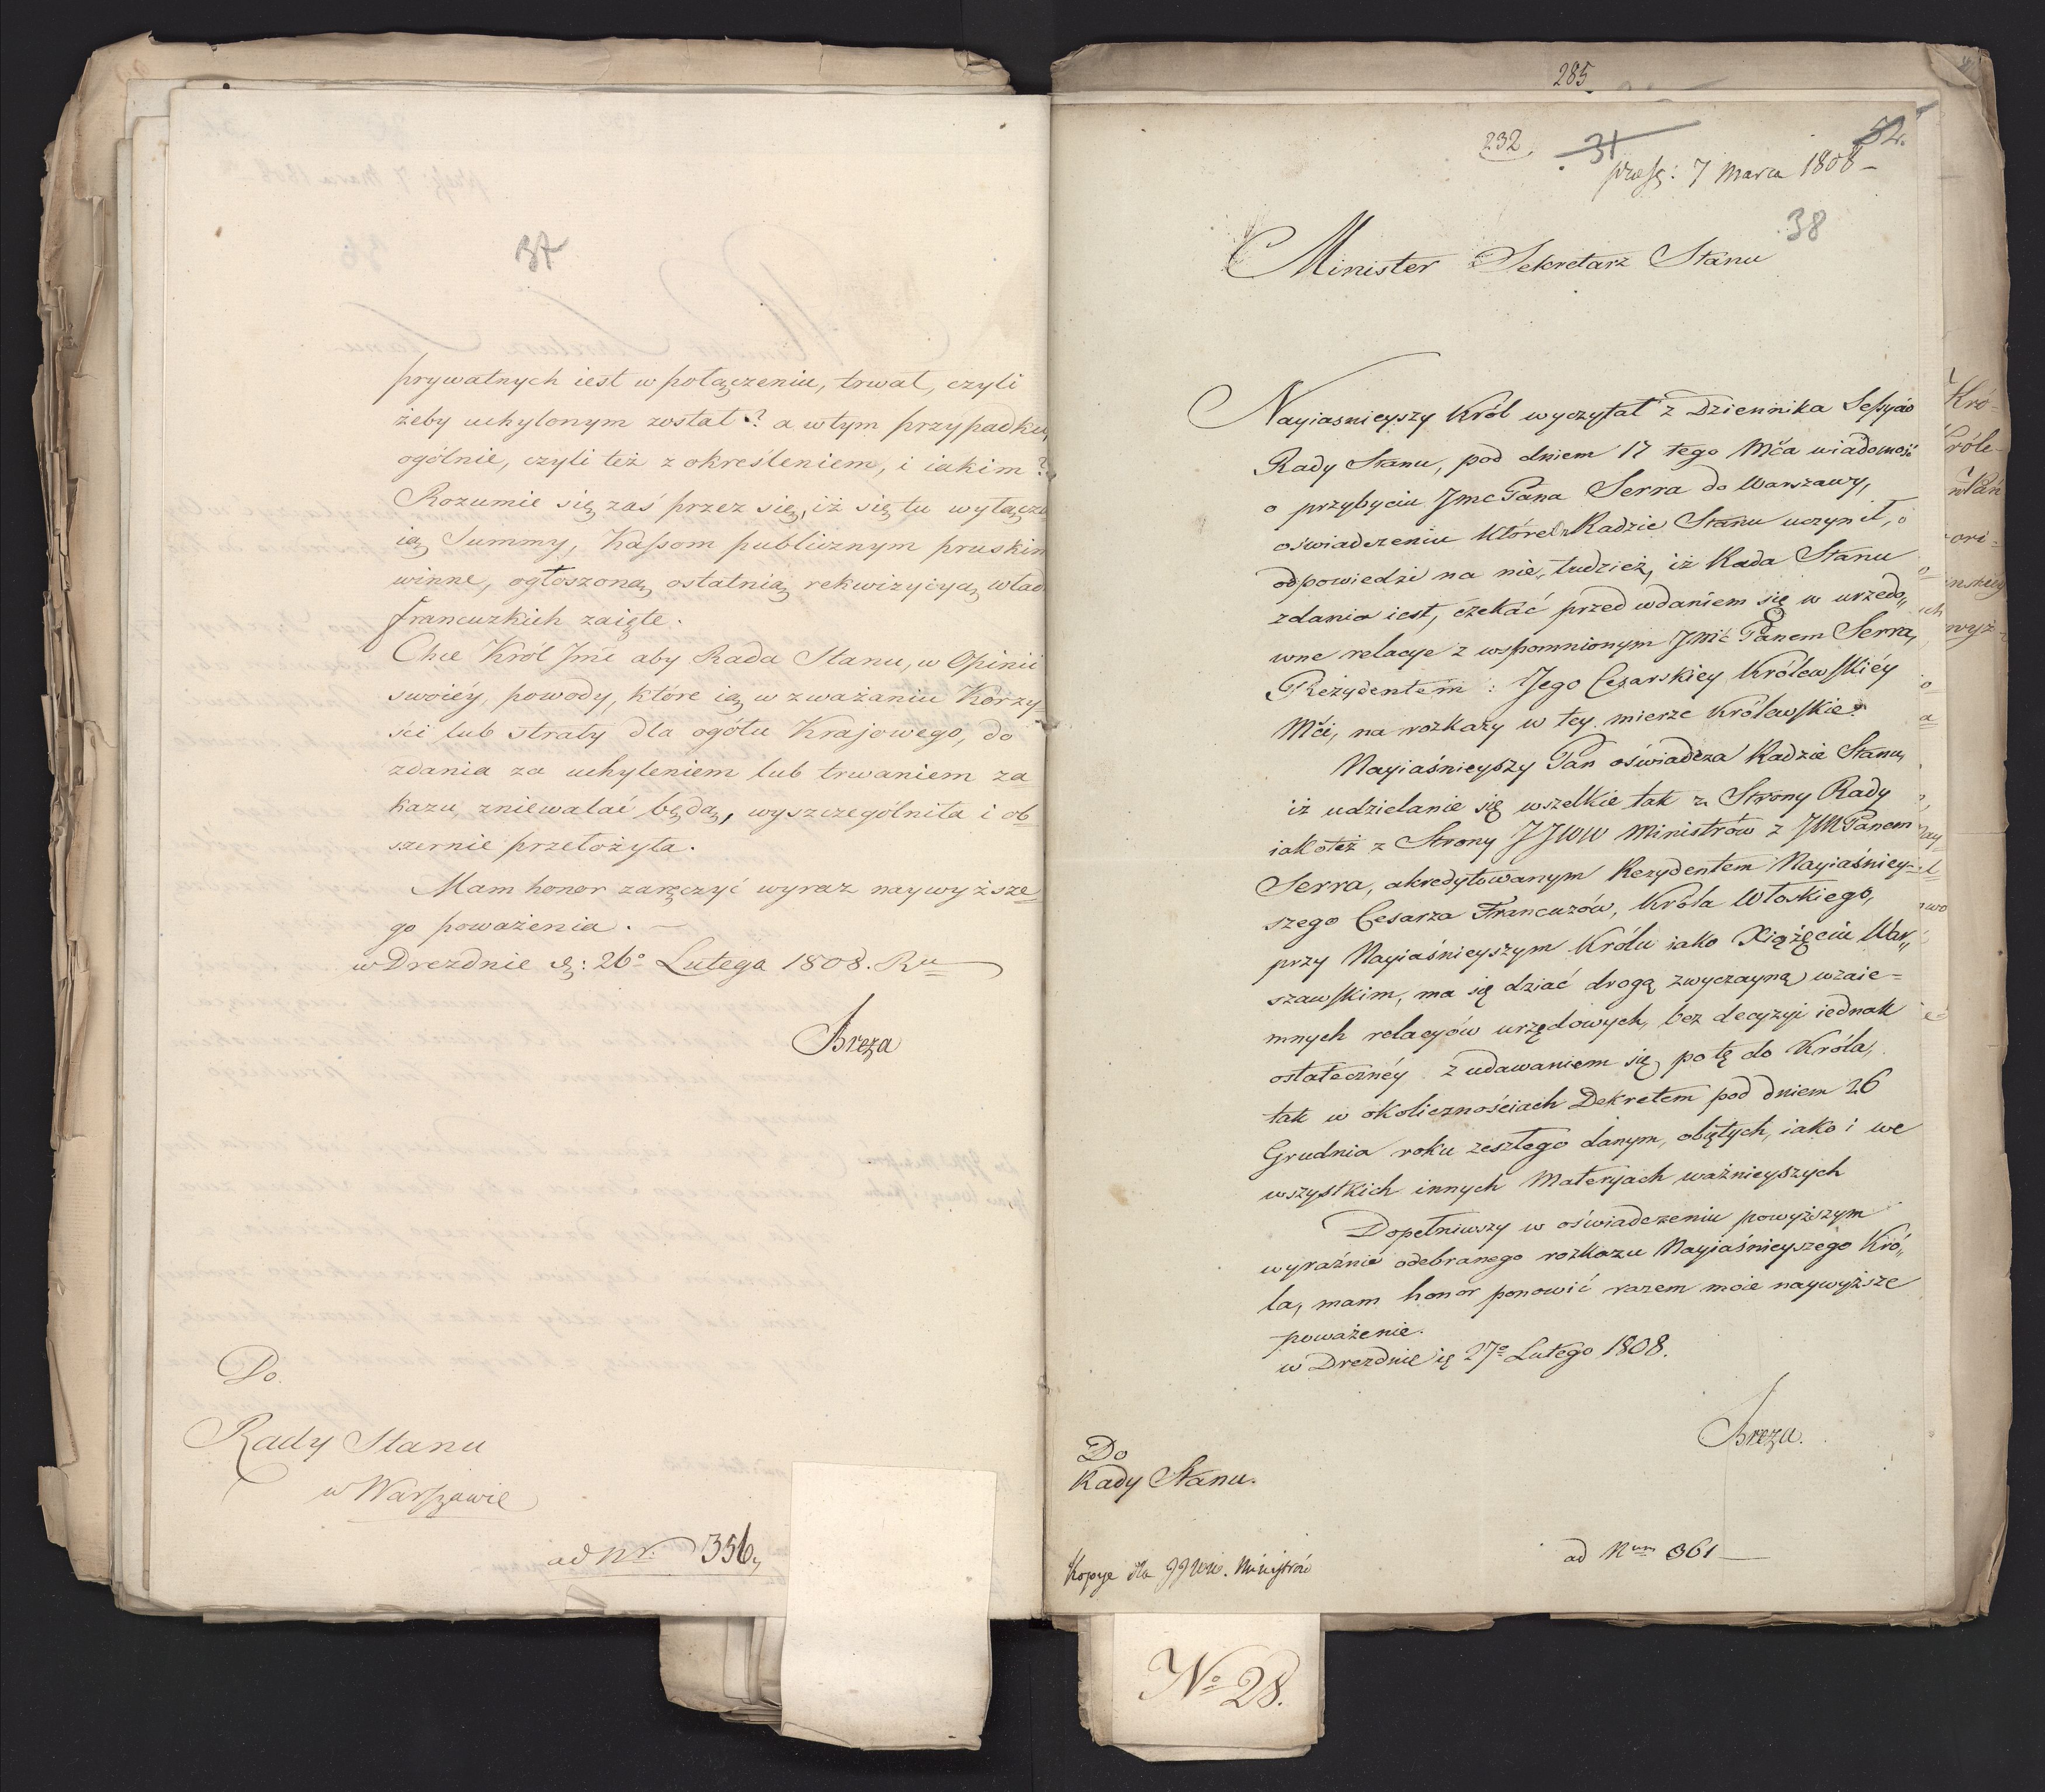 37
prywatnych iest w połączeniu, trwał, czyli
żeby uchylonym został? a w tym przypadku,
ogólnie, czyli też z określeniem, i iakim?
Rozumie się zaś przez się, iż się tu wyłącza
ią Summy, Kassom publicznym pruskim
winne, ogłoszoną ostatnią rekwizycyą wład
francuzkich zaięte.
Chce Król Jmć aby Rada Stanu, w Opinii
swoiéy, powody, które ią w zważaniu Korzy-
ści lub straty dla ogółu Krajowego, do
zdania za uchyleniem lub trwaniem za
kazu, zniewalać będą, wyszczególniła i ob-
szernie przełożyła.
Mam honor zaręczyć wyraz naywyższe-
go poważenia. —
w Drezdnie d: 26° Lutego 1808. Ru
Breza
Do
Rady Stanu
w Warszawie
ad Nr. 356
285
232
31
32.
praes: 7 Marca 1808 -
38
Minister Sekretarz Stanu
Nayiasnieyszy Król wyczytał z Dziennika Sessyów
Rady Stanu, pod dniem 17 tego Mca wiadomość
o przybyciu Jmc Pana Serra do Warszawy,
oświadczeniu które Radzie Stanu uczynił, o
odpowiedzi na nie, tudzież, iż Rada Stanu
zdania iest, czekać przed wdaniem się w urzędo„
wne relacye z wspomnionym Jmić Panem Serra,
Rezydentem Jego Cesarskiey Królewskiéy
Mći, na rozkazy w tey mierze Królewskie.
Nayiaśnieyszy Pan oświadcza Radzie Stanu,
iż udzielanie się wszelkie tak z Strony Rady
iakoteż z Strony JJWW Ministrów z JM Panem
Serra, akredytowanym Rezydentem Nayiaśniey-
szego Cesarza Francuzów, Króla Włoskiego,
przy Nayiaśnieyszym Królu iako Xiążęciu War„
szawskim, ma się dziać drogą zwyczayną wzaie=
mnych relacyów urzędowych, bez decyzyi iednak
ostatecznéy z udawaniem się po tę do Króla,
tak w okolicznościach Dekretem pod dniem 26
Grudnia roku zeszłego danym, obiętych, iako i we
wszystkich innych Materyach ważnieyszych
Dopełniwszy w oświadczeniu powyższym
wyraźnie odebranego rozkazu Nayiaśnieyszego Kró„
la, mam honor ponowić razem moie naywyższe
poważenie.
w Drezdnie 27° Lutego 1808.
Breza.
Do
Rady Stanu.
ad Num 361
Kopye dla JJWW. Ministrów
No 28.